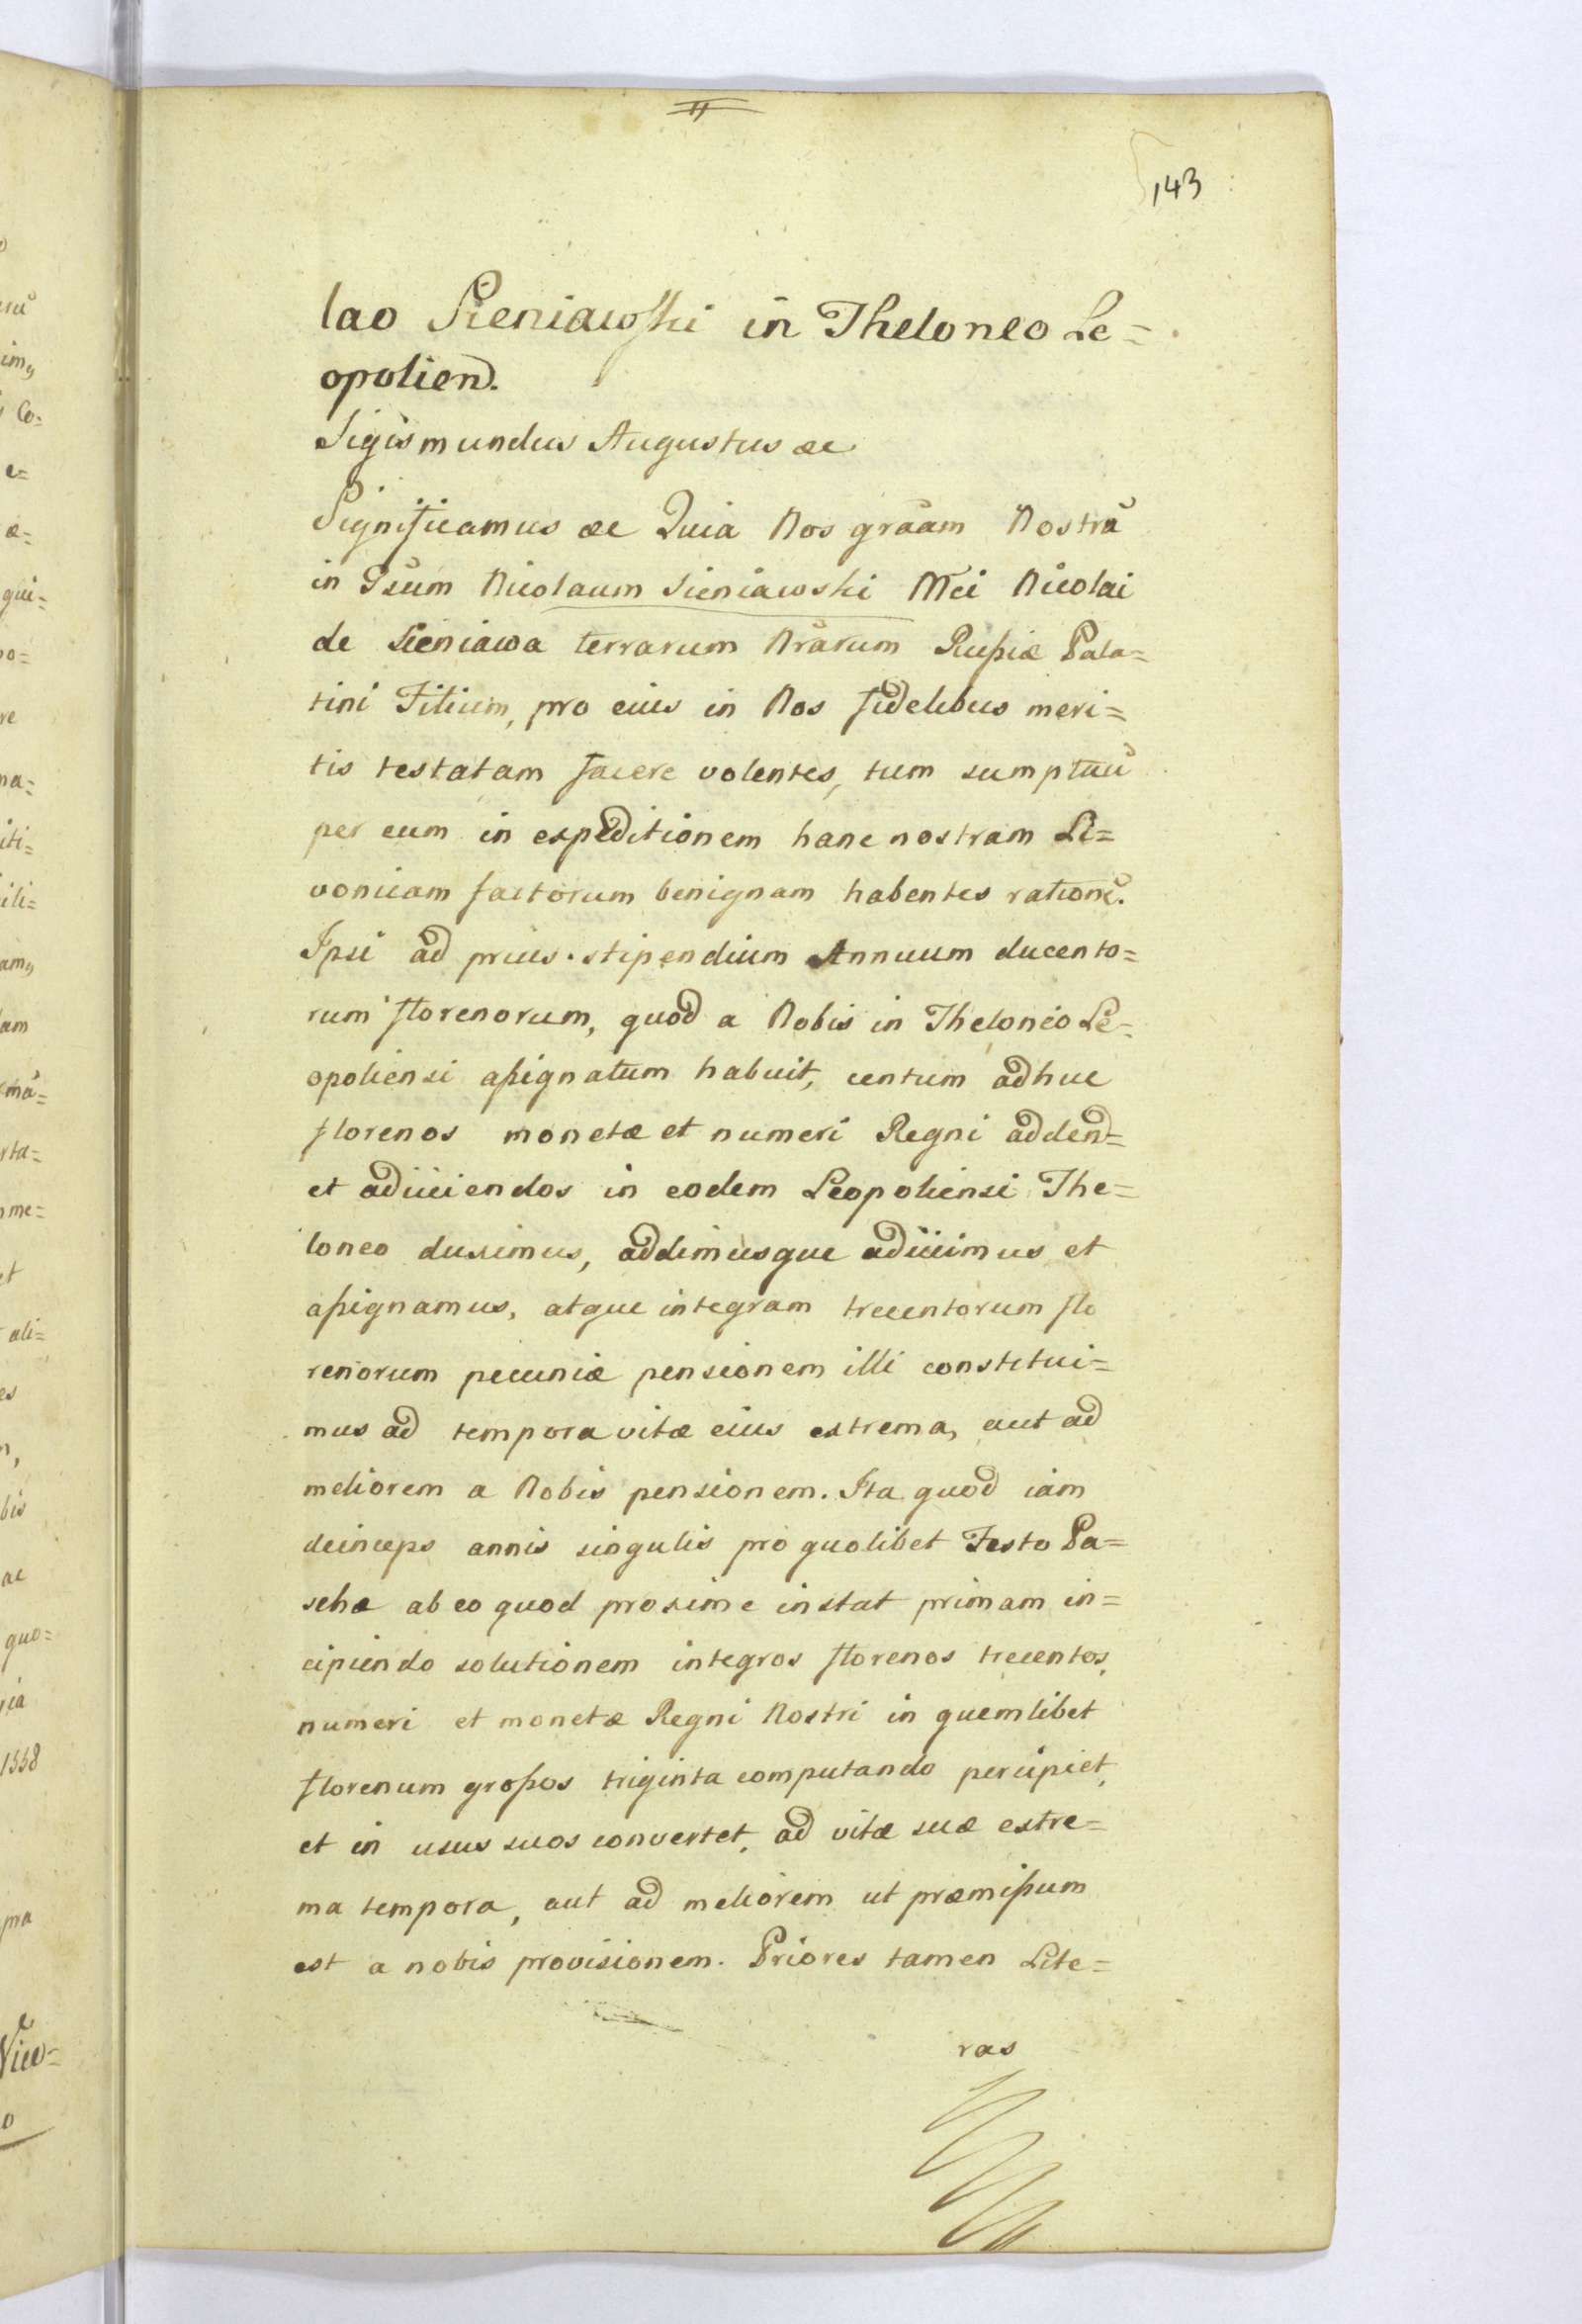 143
lao Sieniawski in Theloneo Le=
opolien.
Sigismundus Augustus &c
Significamus &c Quia Nos grãam Nostrũ
in Gsum Nicolaum Sieniawski Mci Nicolai
de Sieniawa terrarum Nrarum Rußiæ Pala=
tini Filium, pro eius in Nos fidelibus meri=
tis testatam facere volentes, tum sumptuũ
per eum in expeditionem hanc nostram Li=
vonicam factorum benignam habentes rationẽ.
Ipsi ad prius stipendium Annuum ducento=
rum florenorum, quod a Nobis in Theloneo Le=
opoliensi aßignatum habuit, centum adhuc
florenos monetæ et numeri Regni addend=
et adiiciendos in eodem Leopoliensi The=
loneo duximus, addimusque adiicimus et
aßignamus, atque integram trecentorum flo
renorum pecuniæ pensionem illi constitui=
mus ad tempora vitæ eius extrema, aut ad
meliorem a Nobis pensionem. Ita quod iam
deinceps annis singulis pro quolibet Festo Pa=
schæ ab eo quod proxime instat primam in=
cipiendo solutionem integros florenos trecentos,
numeri et monetæ Regni Nostri in quemlibet
florenum großos triginta computando percipiet,
et in usus suos convertet, ad vitæ suæ extre=
ma tempora, aut ad meliorem ut præmißum
est a nobis provisionem. Priores tamen Lite=
ras